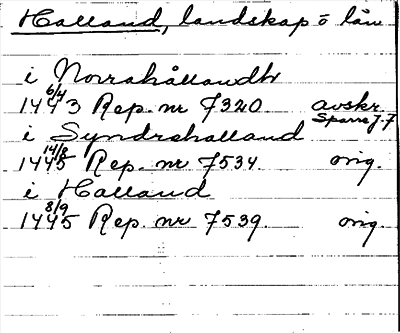 Halland, landskap o län
i Norrahållandh
1443 6/4 Rep. nr 7320 avskr. Sparre J. 7
i Syndrahalland
1445 14/8 Rep. nr 7534 orig.
i Halland
1445 8/9 Rep. nr 7539 orig.